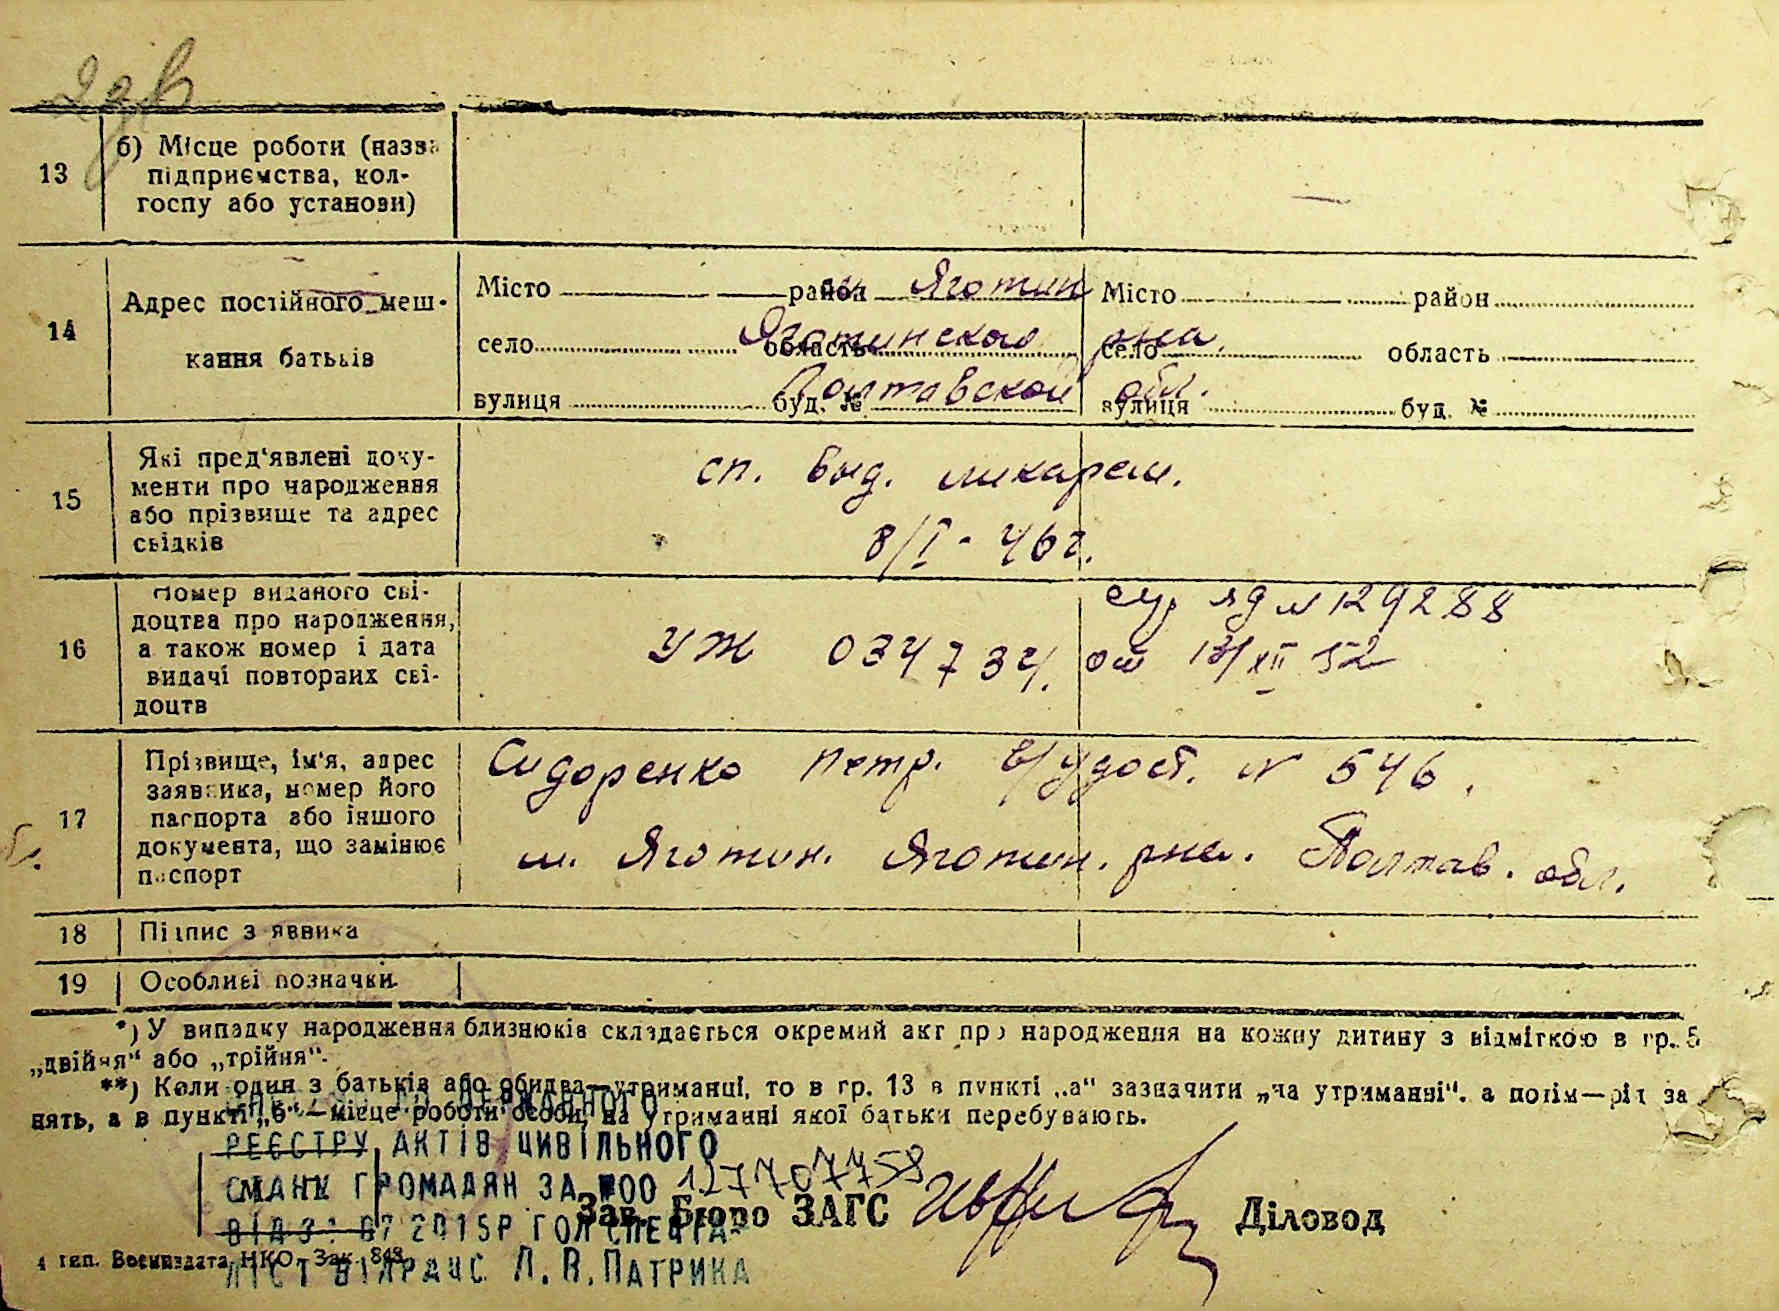 13
б) Місце роботи (назва
підприємства, кол-
госпу або установи)
14
Адрес постійного меш-
кання батьків
Місто район м Яготин Місто район
село область Яготинского рна село область
вулиця буд. № Полтавской обл. вулиця буд. №
15
Які пред'явлені доку-
менти про народження
або прізвище та адрес
свідків
сп. выд. ликарем.
8/I - 46 г.
16
Номер виданого сві-
доцтва про народження,
а також номер і дата
видачі повторних сві-
доцтв
УЖ 034734.
№ 129288
от 13/XII 52
17
Прізвище, ім'я, адрес
заявника, номер його
паспорта або іншого
документа, що замінює
паспорт
Сидоренко петр. в/удост. № 546.
м. Яготин. Яготин. рна. Полтав. обл.
18
Підпис заявника
19
Особливі позначки
*) У випадку народження близнюків складається окремий акт про народження на кожну дитину з відміткою в гр. 5
„двійня“ або „трійня“.
**) Коли один з батьків або обидва—утриманці, то в гр. 13 в пункті „а“ зазначити „на утриманні“, а потім—рід за
нять, а в пункті „б“—місце роботи особи, на утриманні якої батьки перебувають.
ДЕРЖАВНОГО
РЕЄСТРУ АКТІВ ЦИВІЛЬНОГО
СТАНУ ГРОМАДЯН ЗА №00 127707758
ВІД 07 2015Р ГОЛ СПЕЦІА-
ЛІСТ ВІДРАЦС Л.В.ПАТРИКА
Зав. Бюро ЗАГС
Діловод
4 тип. Воениздата НКО. Зак. 843